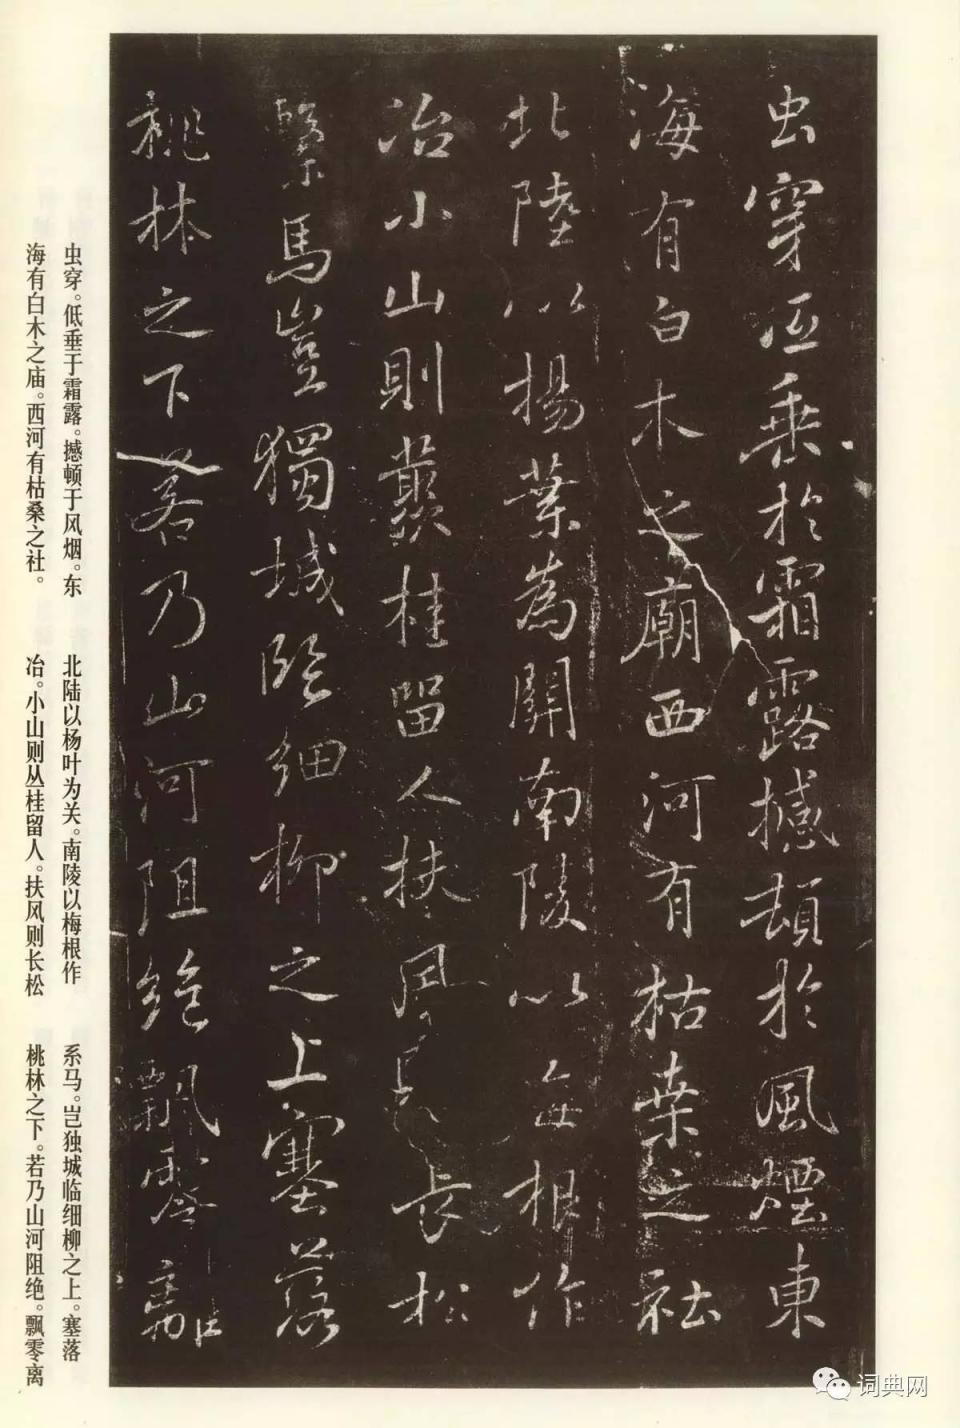 虫穿伍垂於霜露撼頓於風煙東
海有白木之廟西河有枯桒之社
北陸以揚葉為關南陵以每根作
冶小山則叢桂留人扶風長松
繫馬豈獨城臨細柳之上塞落
桃林之下若乃山河阻絕飄零離
虫穿。低垂于霜露。撼顿于风烟。东
海有白木之庙。西河有枯桑之社。
北陆以杨叶为关。南陵以梅根作
冶。小山则丛桂留人。扶风则长松
系马。岂独城临细柳之上。塞落
桃林之下。若乃山河阻绝。飘零离
词典网